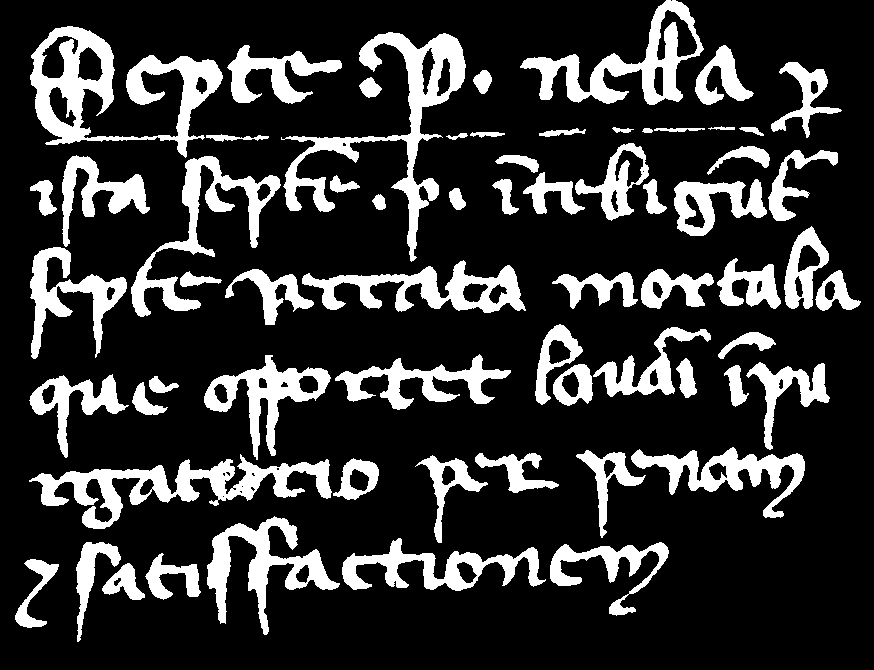 Septe .P. nella ꝑ
ista septē .p. ītelligūt̄
septē peccata mortalia
que opportet lauāī īpu
rgatorio per penam
⁊ satisfactionem